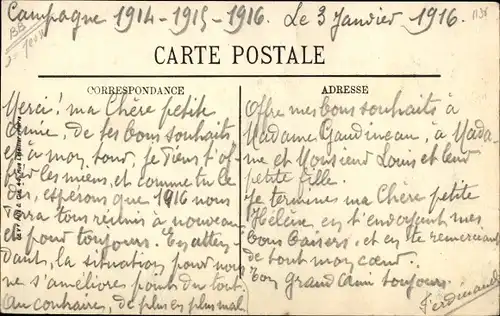 Campagne 1914-1915-1916. Le 3 Janvier 1916.
CARTE POSTALE
CORRESPONDANCE
Merci! ma Chère petite
amie, de tes bons souhaits
et à mon tour, je tiens t'of
frir les miens, et comme tu le
dis, espérons que 1916 nous
verra tous réunis à nouveau
et pour toujours. En atten-
dant, la situation pour nous
ne s'améliore point du tout
au contraire, de plus en plus mal
ADRESSE
Offre mes bons souhaits à
Madame Gaudineau, à Mada-
me et Monsieur Louis et leur
petite fille.
Je termine ma Chère petite
Hélène, en t'envoyant mes
bons baisers, et en te remerciant
de tout mon cœur.
Ton grand ami toujours.
Ferdinand